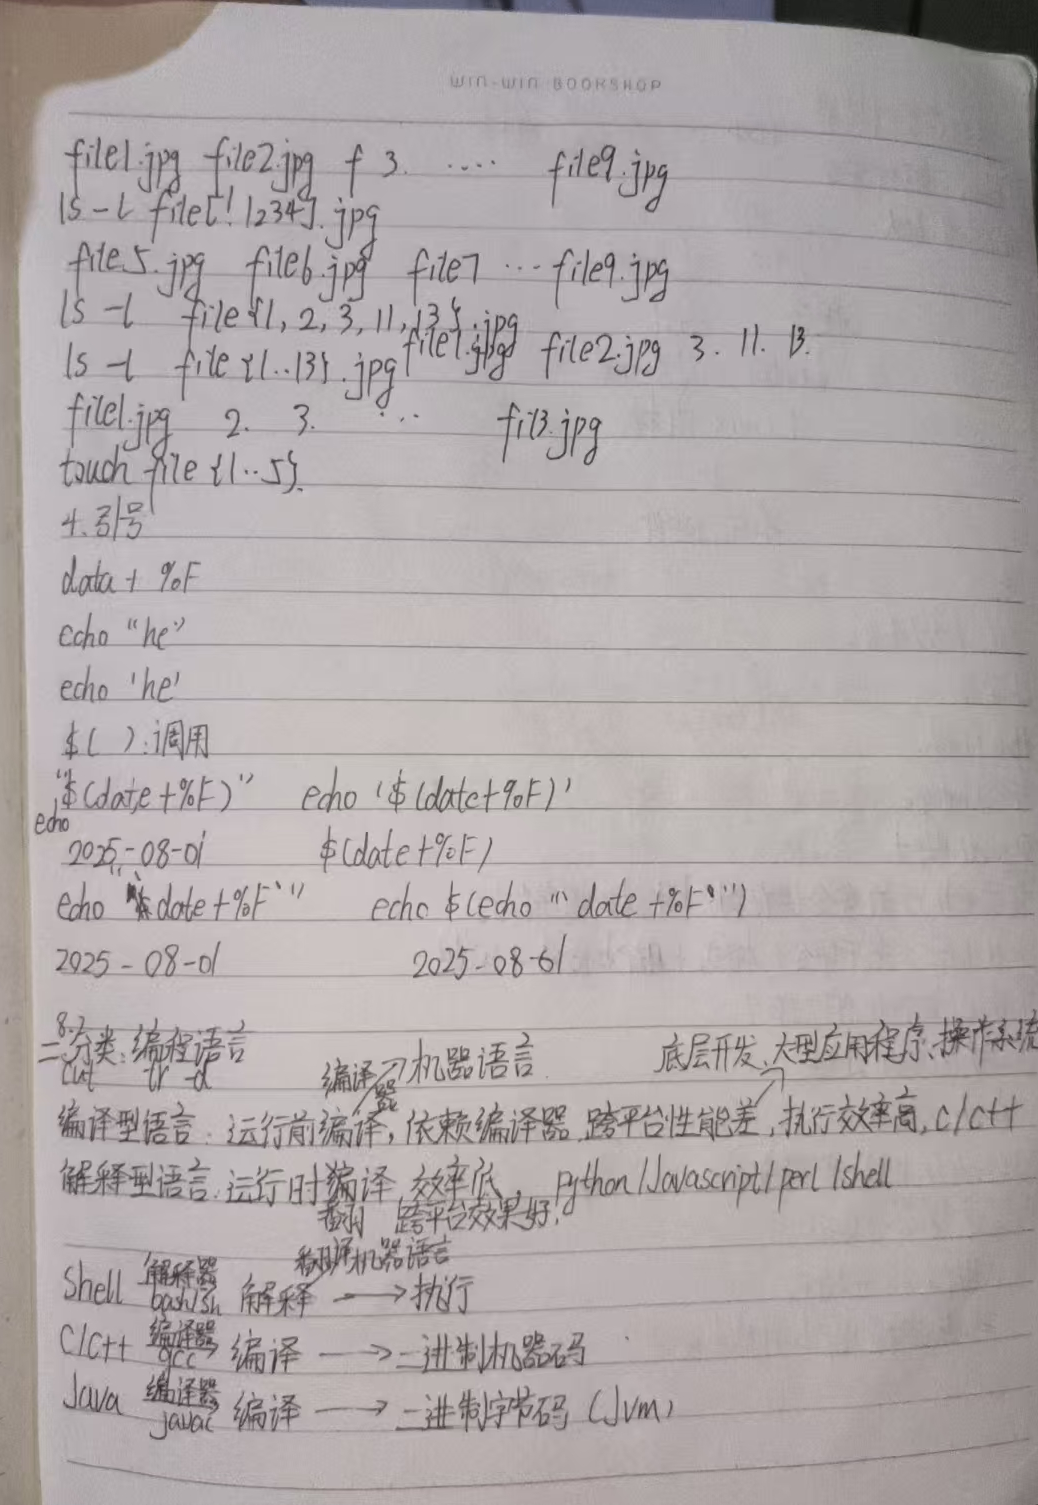 WIN-WIN BOOKSHOP
file1.jpg file2.jpg f 3. .... file9.jpg
ls -l file[!1234].jpg
file5.jpg file6.jpg file7 ... file9.jpg
ls -l file{1,2,3,11,13}.jpg
file1.jpg file2.jpg 3. 11. 13.
ls -l file{1..13}.jpg
file1.jpg 2. 3. ... fil3.jpg
touch file{1..5}.
4.引号
data + %F
echo "he"
echo 'he'
$( ):调用
echo "$(date+%F)" echo '$(date+%F)'
2025-08-01 $(date+%F)
echo "`date+%F`" echo $(echo "`date +%F`")
2025-08-01 2025-08-01
8.2
二.分类:编程语言 编译器→机器语言 底层开发、大型应用程序、操作系统
cut tr -d
编译型语言:运行前编译,依赖编译器,跨平台性能差,执行效率高,C/C++
解释型语言:运行时编译,效率低, python/Javascript/perl/shell
翻 跨平台效果好,
翻译机器语言
Shell 解释器 bash/sh 解释 → 执行
C/C++ 编译器 gcc 编译 → 二进制机器码
Java 编译器 javac 编译 → 二进制字节码(Jvm)